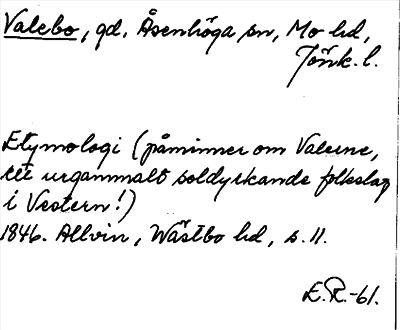 Valebo, gd, Åsenhöga sn, Mo hd,
Jönk. l.
Etymologi (påminner om Valerne,
ett urgammalt soldyrkande folkslag
i Vestern!)
1846. Allvin, Wästbo hd, s. 11.
E.R.-61.